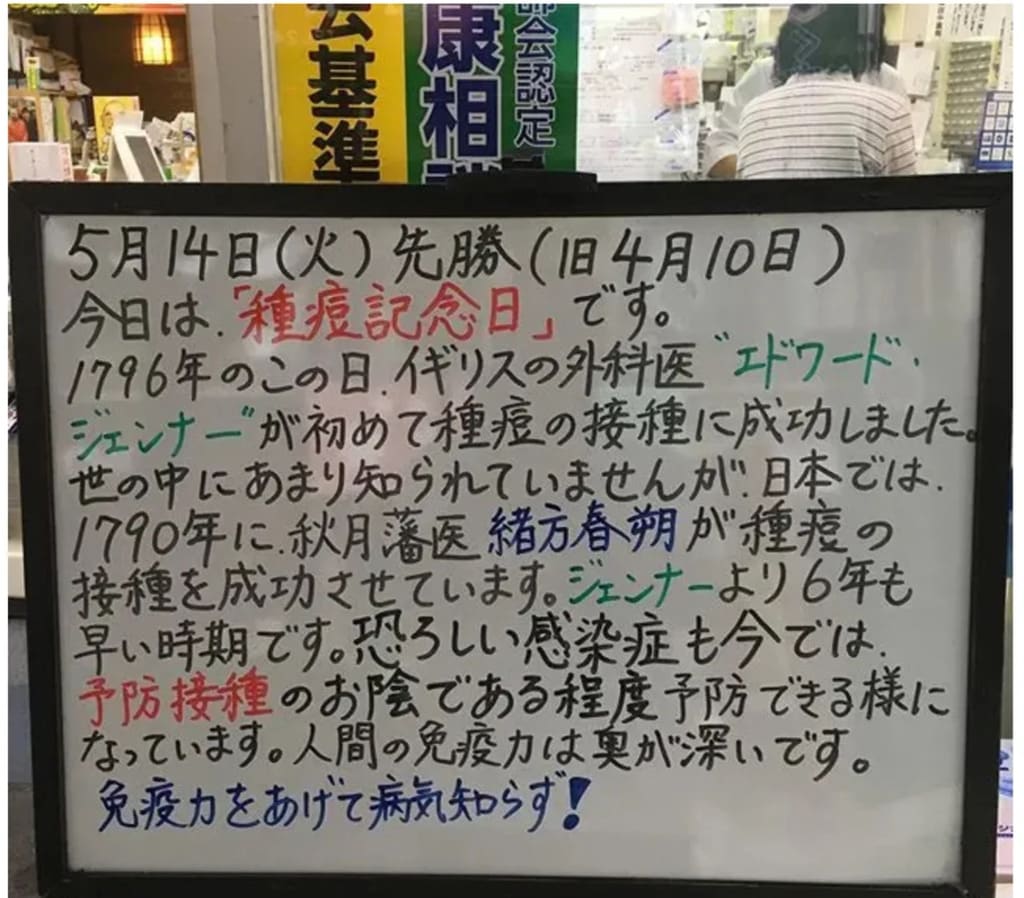 会基準
康相談
師会認定
5月14日(火)先勝(旧4月10日)
今日は、「種痘記念日」です。
1796年のこの日、イギリスの外科医"エドワード・
ジェンナー"が初めて種痘の接種に成功しました。
世の中にあまり知られていませんが、日本では、
1790年に、秋月藩医緒方春朔が種痘の
接種を成功させています。ジェンナーより6年も
早い時期です。恐ろしい感染症も今では、
予防接種のお陰である程度予防できる様に
なっています。人間の免疫力は奥が深いです。
免疫力をあげて病気知らず!